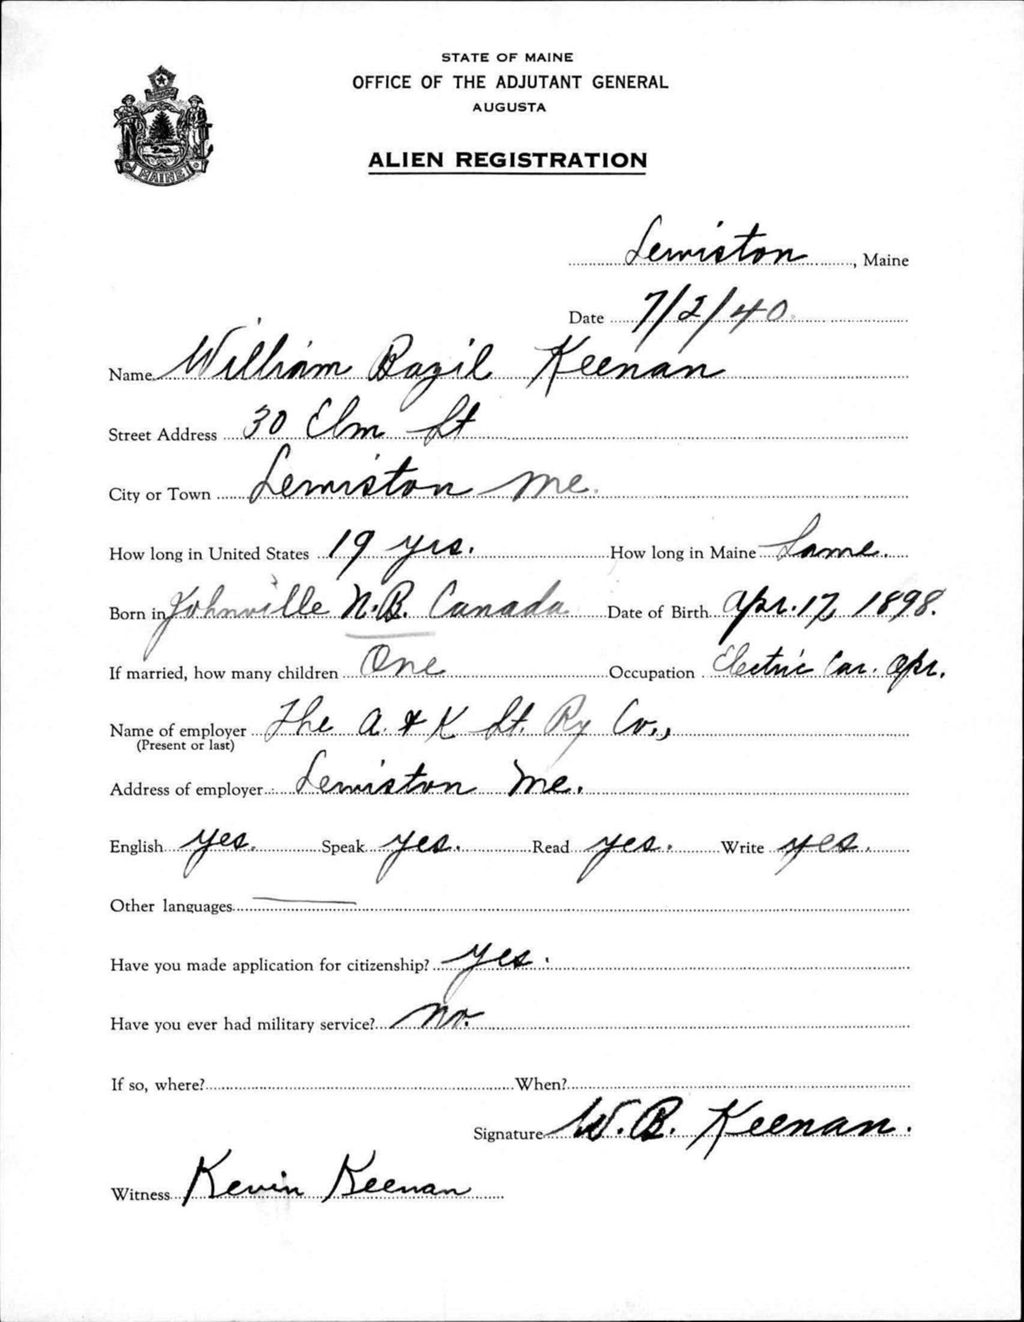 STATE OF MAINE
OFFICE OF THE ADJUTANT GENERAL
AUGUSTA
ALIEN REGISTRATION
MAINE
Lewiston, Maine
Date 7/2/40.
Name William Bazil Keenan
Street Address 30 Elm St
City or Town Lewiston Me.
How long in United States 19 yrs. How long in Maine Same.
Born in Johnville N.B. Canada Date of Birth Apr. 17, 1898.
If married, how many children One Occupation Electric Car. Opr.
Name of employer The A. & K St. Ry Co.,
(Present or last)
Address of employer Lewiston Me.
English yes. Speak yes. Read yes. Write yes.
Other languages
Have you made application for citizenship? Yes.
Have you ever had military service? No.
If so, where? When?
Signature W. B. Keenan.
Witness Kevin Keenan